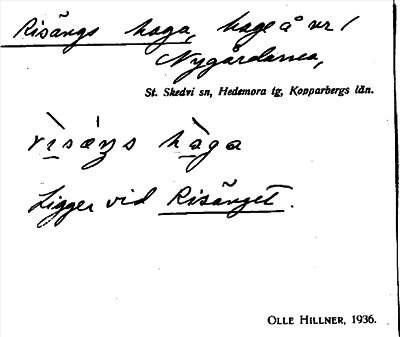 Risängs haga, hage å nr 1
Nygårdarna,
St. Skedvi sn, Hedemora tg, Kopparbergs län.
rìsáŋs hàga
Ligger vid Risänget.
OLLE HILLNER, 1936.